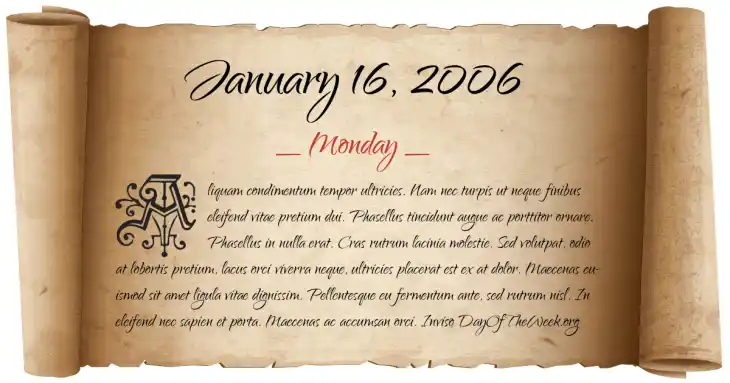 January 16, 2006
_ Monday _
Aliquam condimentum tempor ultricies. Nam nec turpis ut neque finibus
eleifend vitae pretium dui. Phasellus tincidunt augue ac porttitor ornare.
Phasellus in nulla erat. Cras rutrum lacinia molestie. Sed volutpat, odio
at lobortis pretium, lacus orci viverra neque, ultricies placerat est ex at dolor. Maecenas eu-
ismod sit amet ligula vitae dignissim. Pellentesque eu fermentum ante, sed rutrum nisl. In
eleifend nec sapien et porta. Maecenas ac accumsan orci. Inviso DayOfTheWeek.org